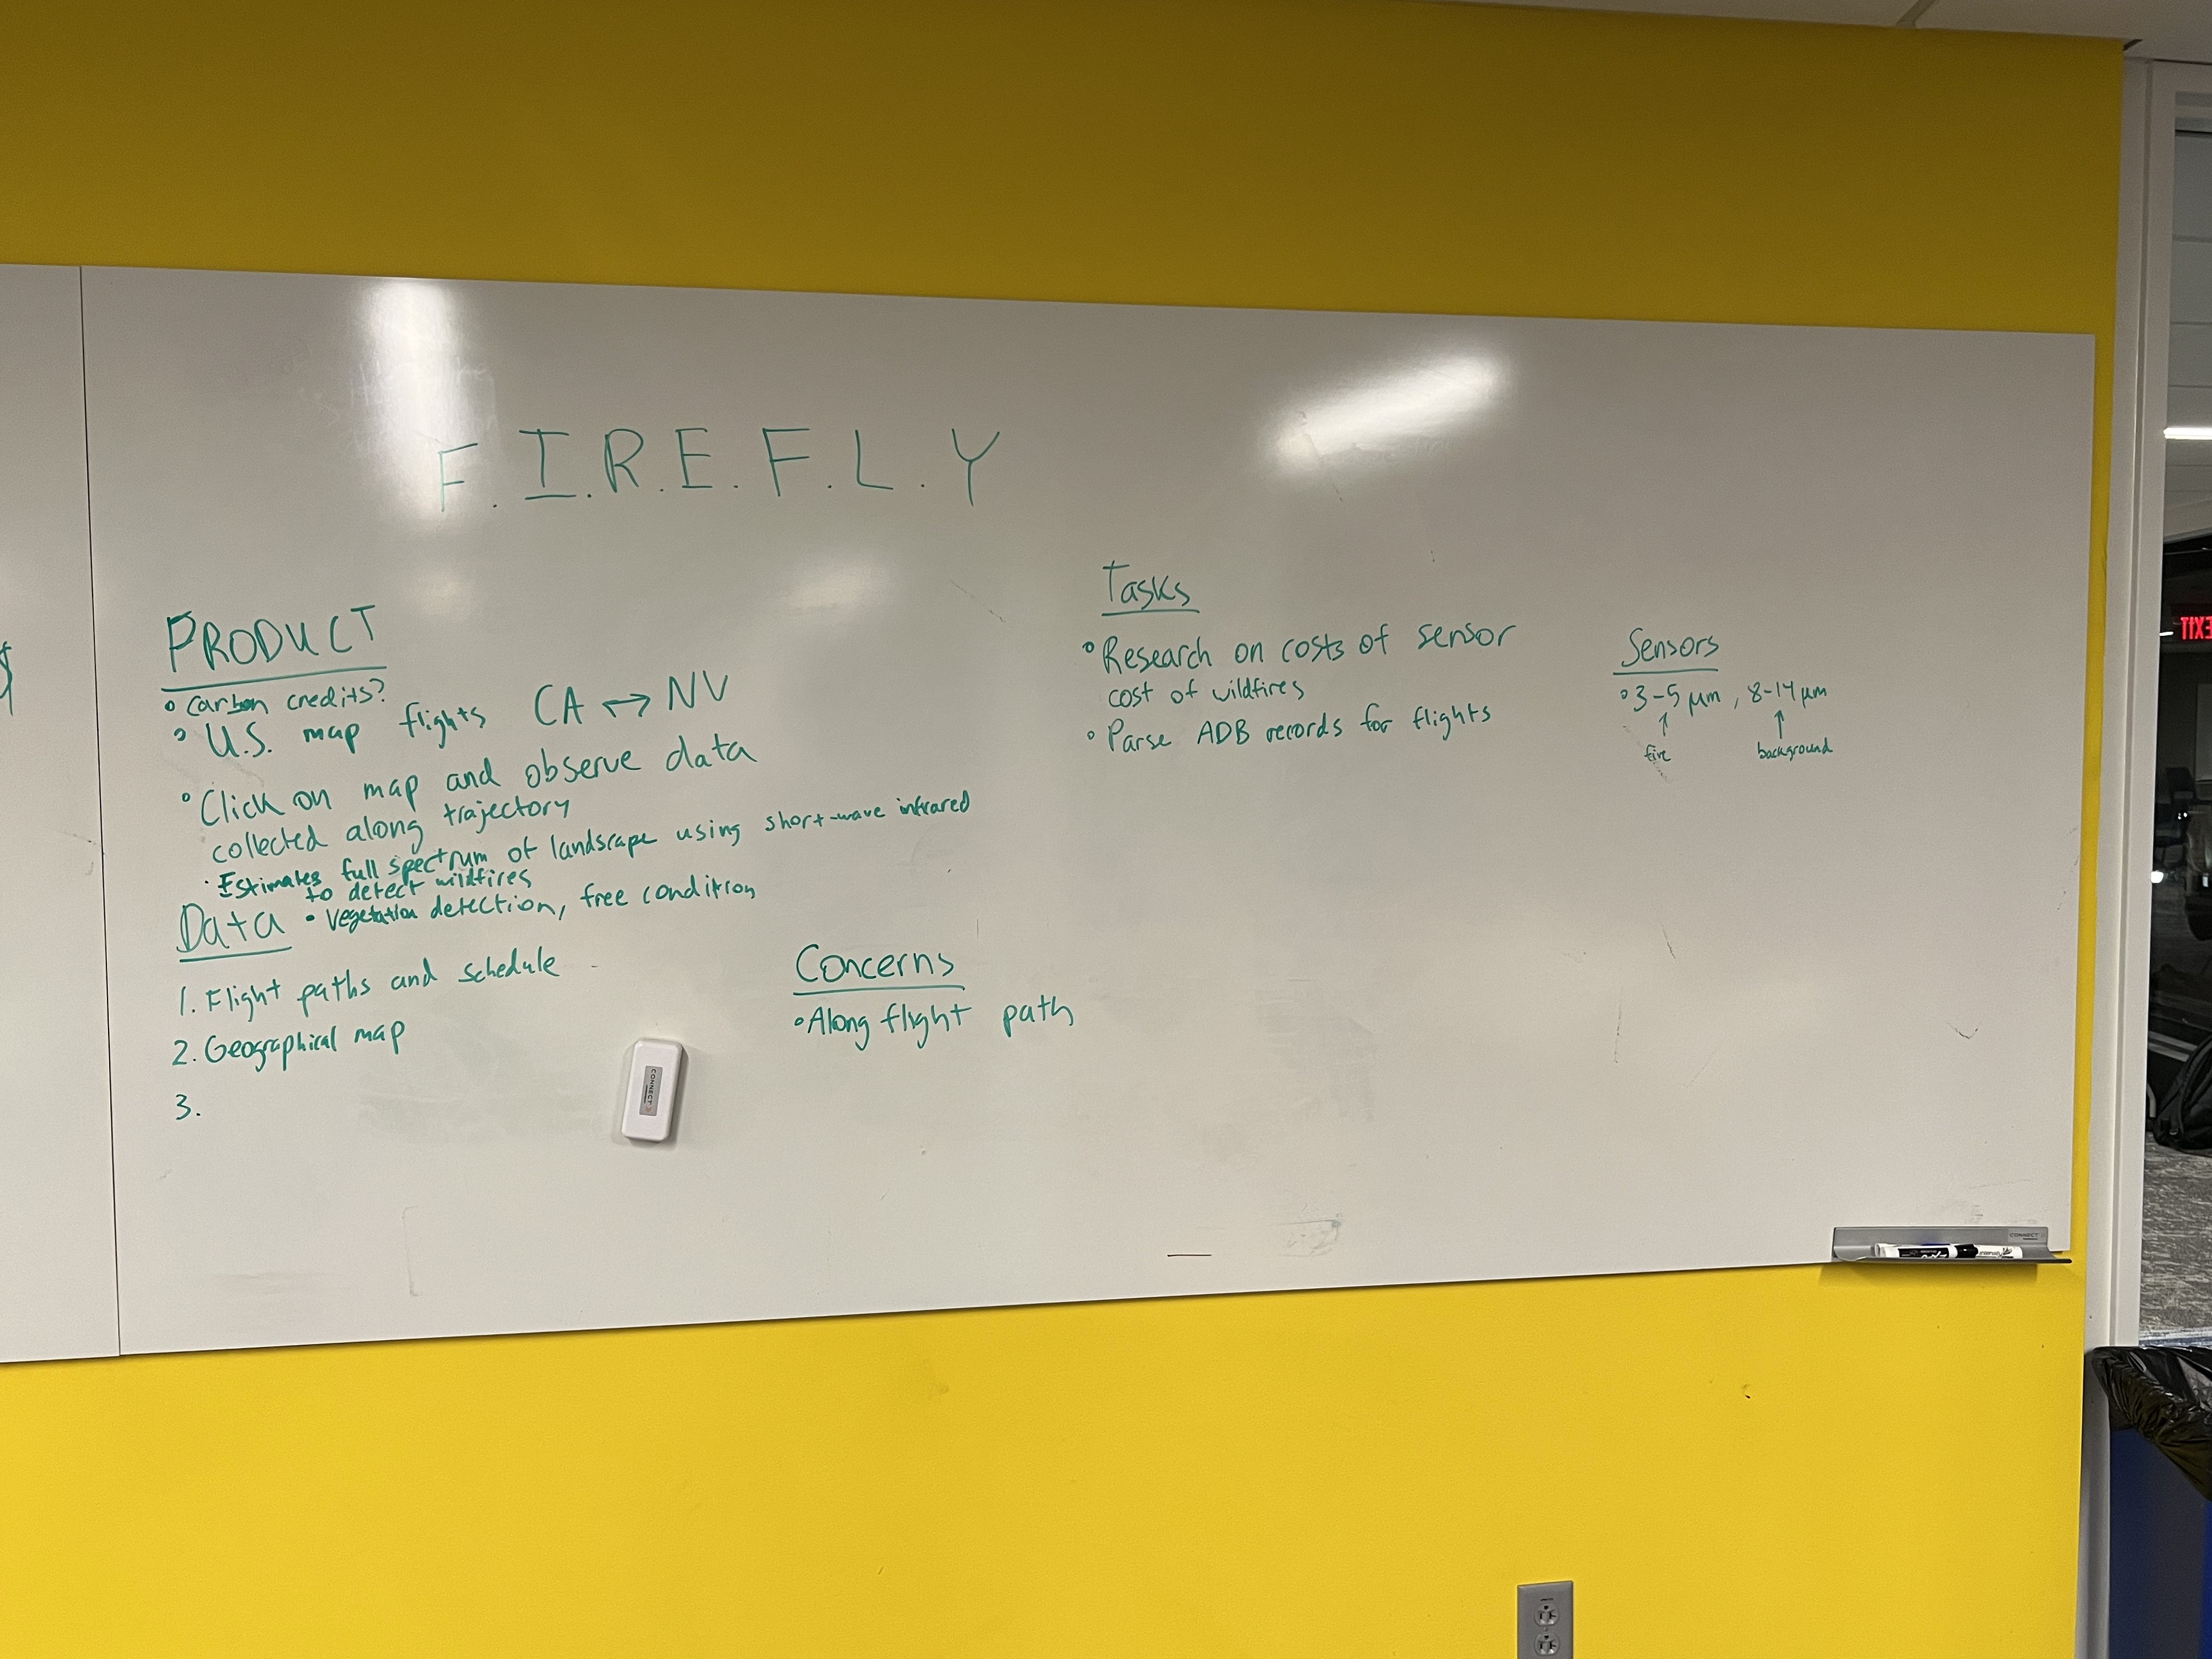 F.I.R.E.F.L.Y
PRODUCT
Carbon credits?
U.S. map flights CA ↔ NV
Click on map and observe data
collected along trajectory
Estimates full spectrum of landscape using short-wave infrared
to detect wildfires
Vegetation detection, tree condition
Data
1. Flight paths and schedule
2. Geographical map
3.
Concerns
Along flight path
Tasks
Research on costs of sensor
cost of wildfires
Parse ADB records for flights
Sensors
3-5 μm, 8-14 μm
fire
background
CONNECT
CONNECT
EXIT